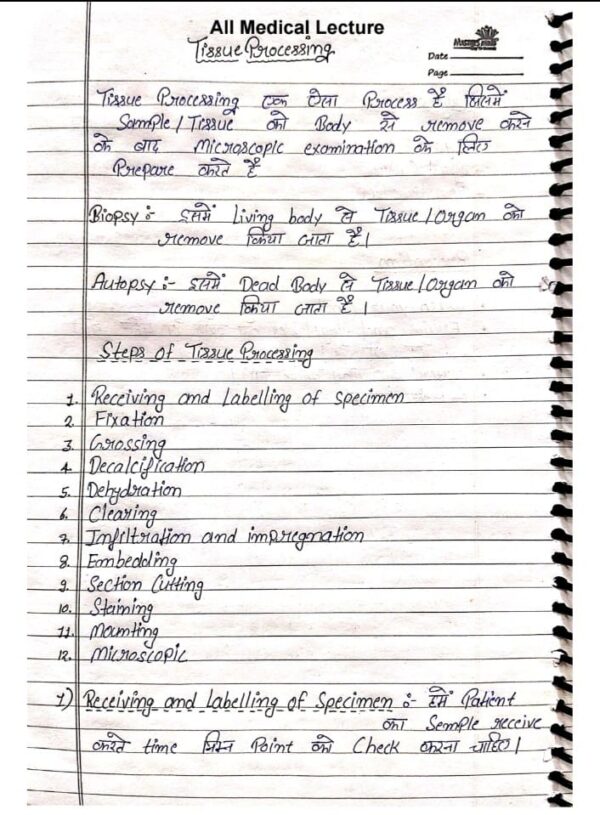 All Medical Lecture
Tissue Processing
Date
Page
Tissue Processing एक ऐसा Process है जिसमें
Sample/Tissue को Body से remove करने
के बाद Microscopic examination के लिए
Prepare करते हैं
Biopsy :- इसमें living body से Tissue/Organ को
remove किया जाता है।
Autopsy :- इसमें Dead Body से Tissue/Organ को
remove किया जाता है।
Steps of Tissue Processing
1. Receiving and Labelling of Specimen
2. Fixation
3. Grossing
4. Decalcification
5. Dehydration
6. Clearing
7. Infiltration and impregnation
8. Embedding
9. Section Cutting
10. Staining
11. Mounting
12. Microscopic
1) Receiving and Labelling of Specimen :- हमें Patient
का Semple receive
करते time निम्न Point को Check करना चाहिए।